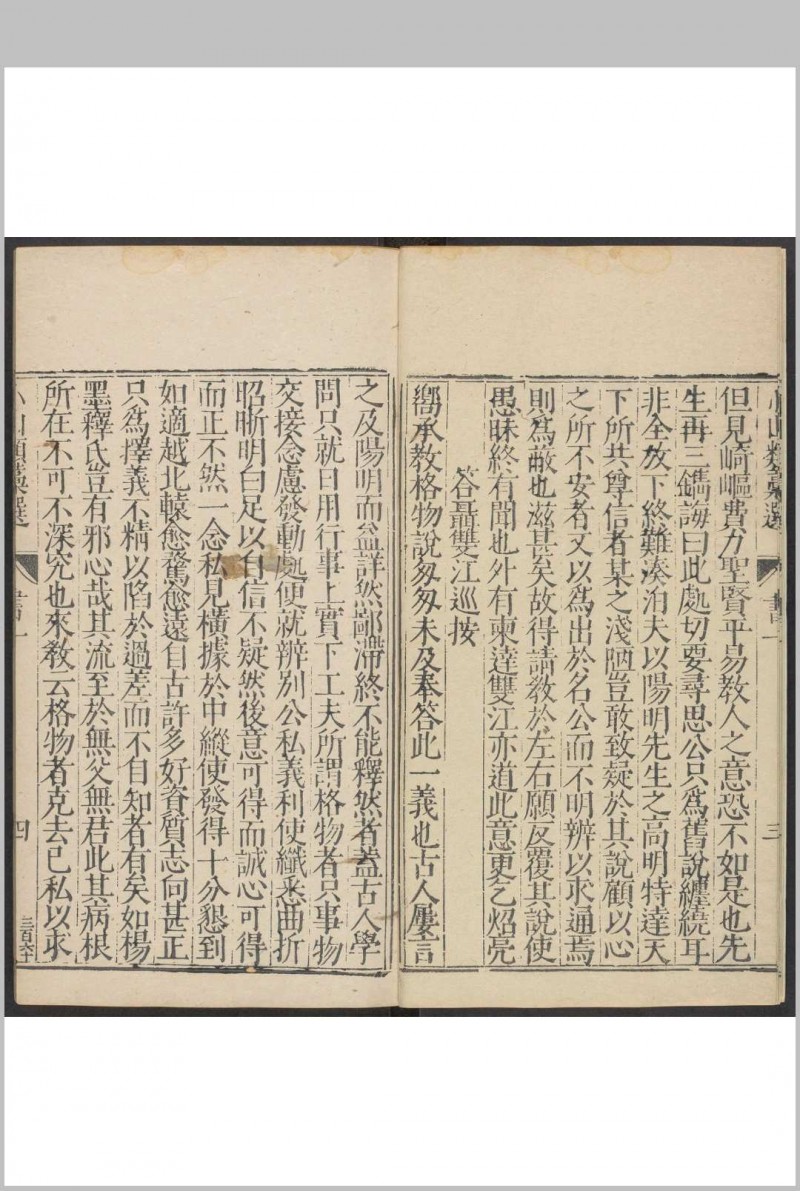 小山類藁選　書一　三
但見崎嶇費力聖賢平易教人之意恐不如是也先
生再三鐫誨曰此處切要尋思公只爲舊說纏繞耳
非全放下終難湊泊夫以陽明先生之高明特達天
下所共尊信者某之淺陋豈敢致疑於其說顧以心
之所不安者又以爲出於名公而不明辨以求通焉
則爲蔽也滋甚矣故得請教於左右願反覆其說使
愚昧終有聞也外有柬達雙江亦道此意更乞炤亮
答聶雙江巡按
嚮承教格物說匆匆未及奉答此一義也古人屢言
之及陽明而益詳然鄙滯終不能釋然者蓋古人學
問只就日用行事上實下工夫所謂格物者只事物
交接念慮發動處便就辨別公私義利使纖悉曲折
昭晰明白足以自信不疑然後意可得而誠心可得
而正不然一念私見橫據於中縱使發得十分懇到
如適越北轅愈騖愈遠自古許多好資質志向甚正
只爲擇義不精以陷於過差而不自知者有矣如楊
墨釋氏豈有邪心哉其流至於無父無君此其病根
所在不可不深究也來教云格物者克去己私以求
小山類藁選　書一　四
三百六十